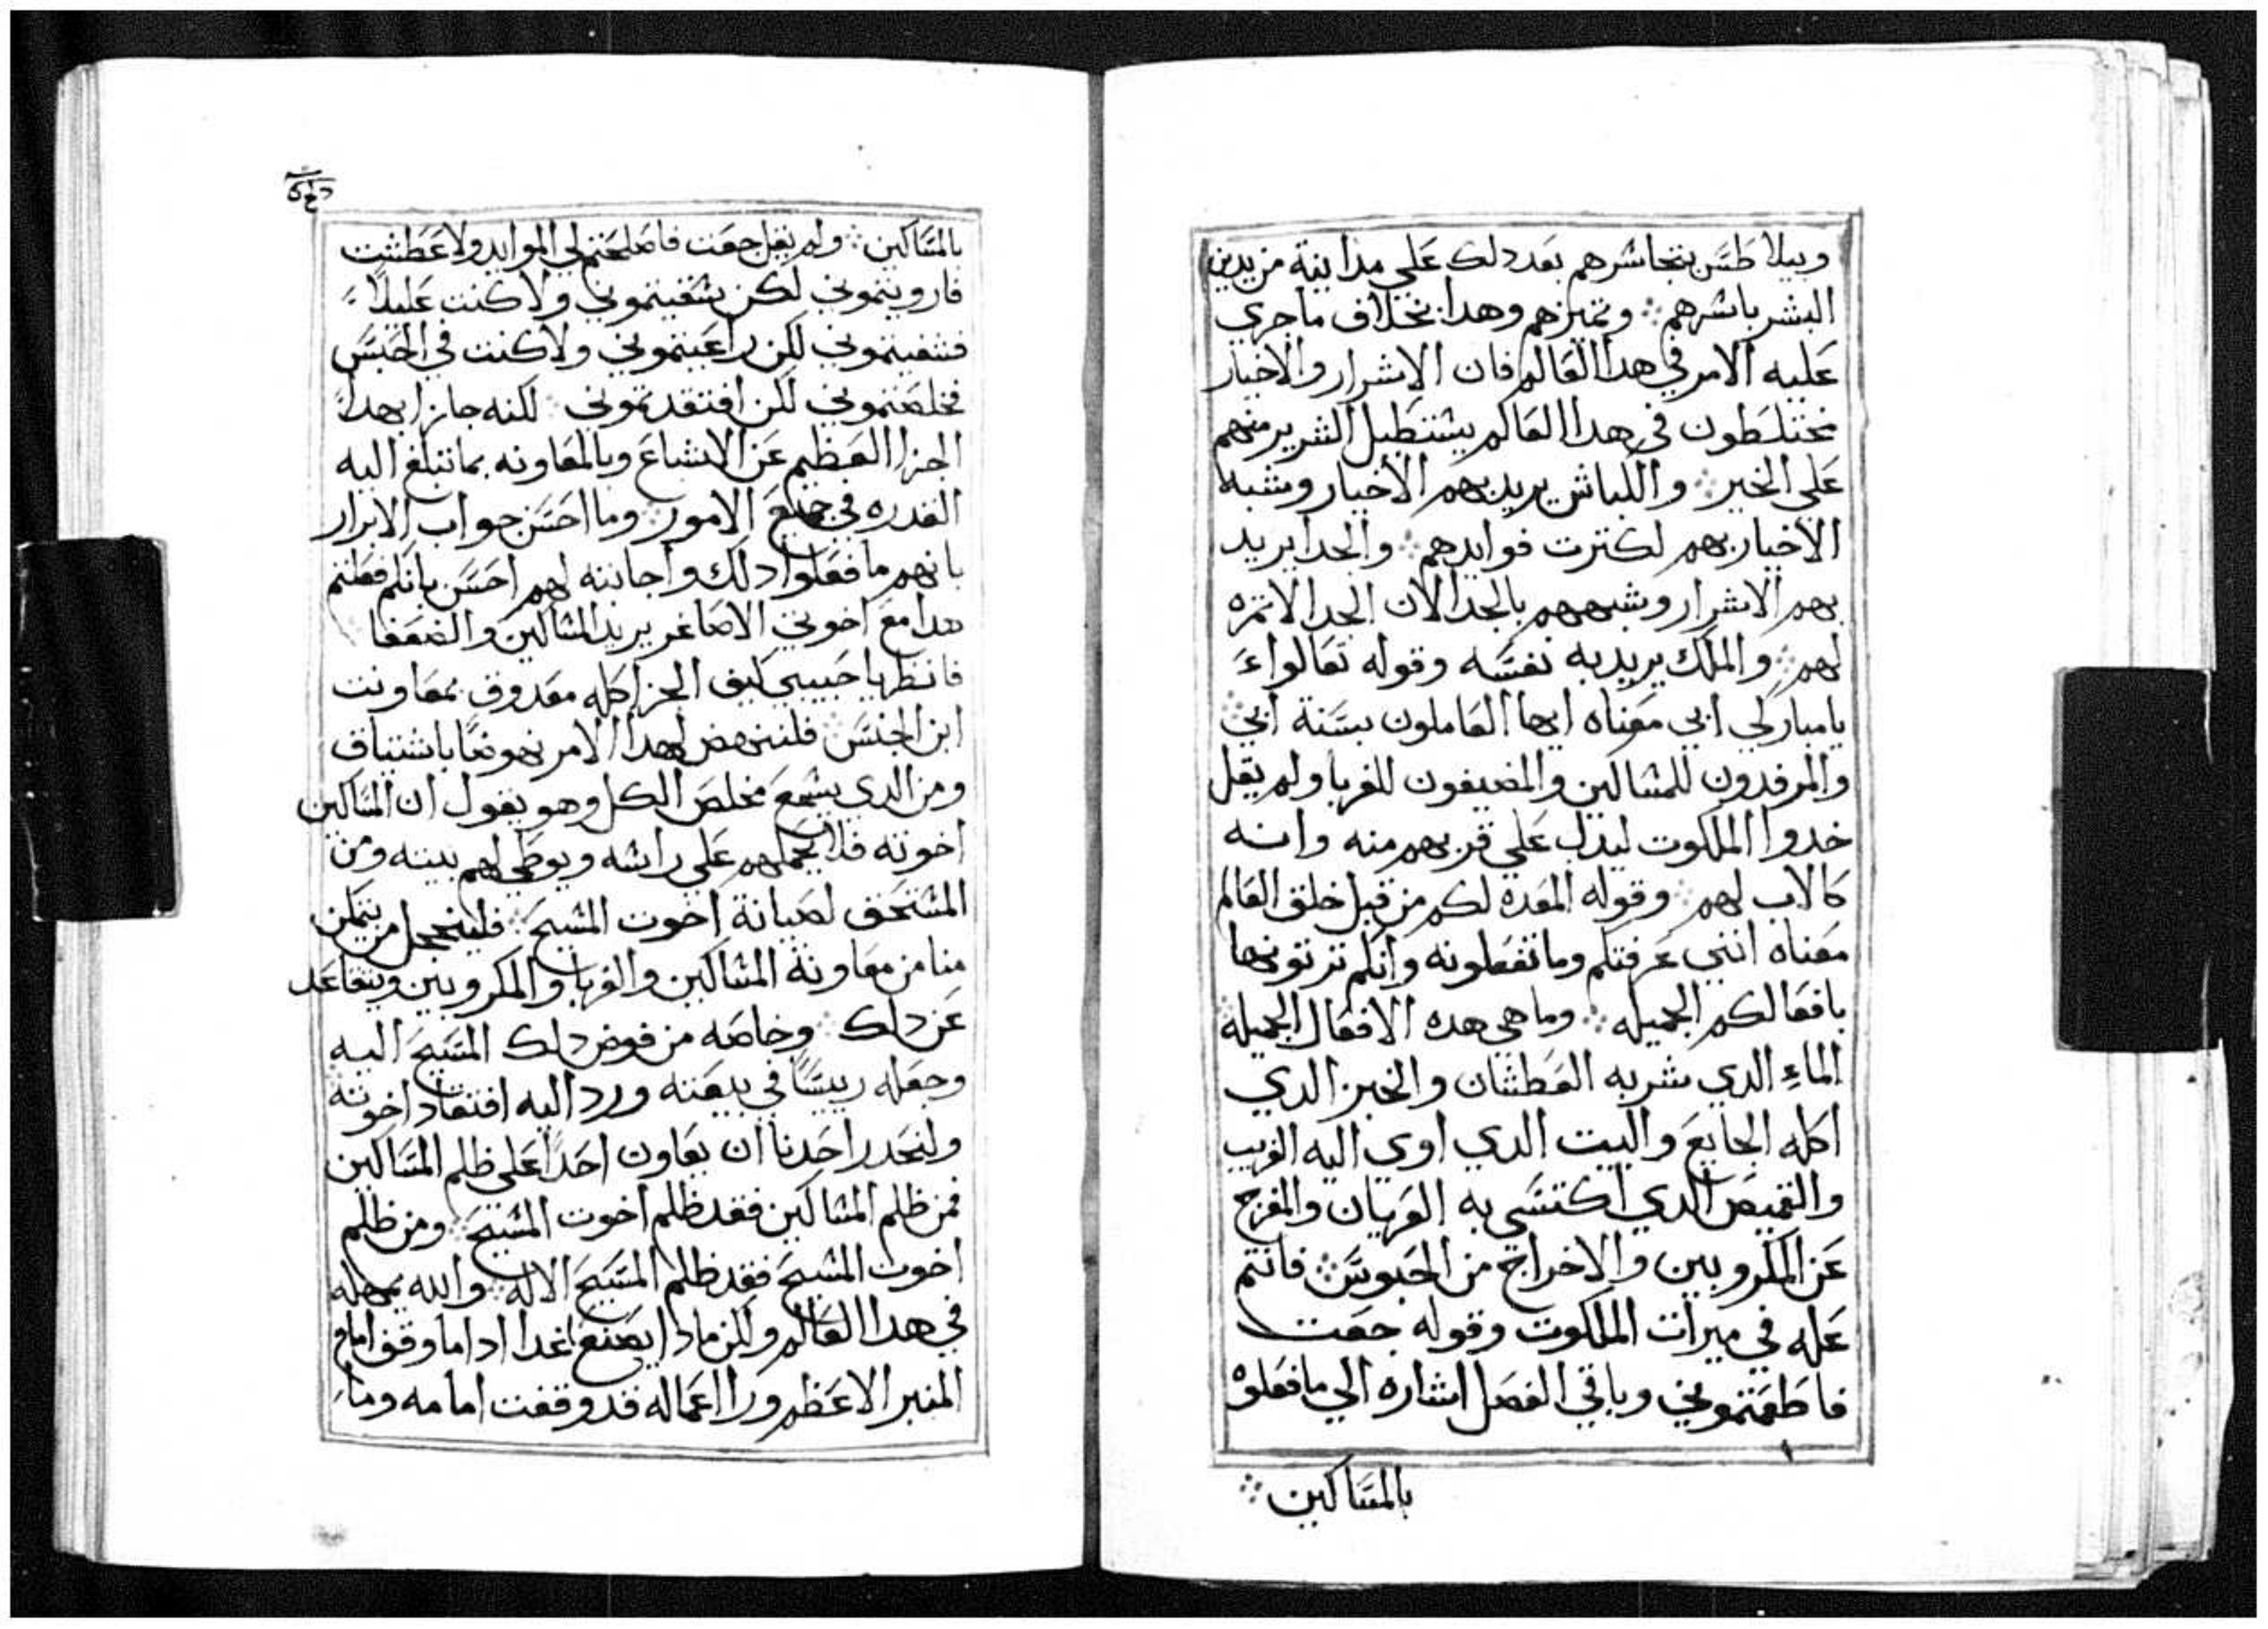 وبيلاطس بتجاسرهم بعد دلك علي مداينة من يدين
البشر باسرهم ∴ وتميزهم وهدا بخلاف ما جري
عليه الامر في هدا العالم فان الاشرار والاخيار
مختلطون في هدا العالم يستطيل الشرير منهم
علي الخير ∴ والكباش يريد بهم الأخيار وشبه
الأخيار بهم لكترت فوايدهم ∴ والجدا يريد
بهم الاشرار وشبههم بالجدا لان الجدا لا تمره
لهم ∴ والملك يريد به نفسه وقوله تعالوا
يا مباركي ابي معناه ايها العاملون بسنة ابي ∴
والمرفدون للمساكين والمضيفون للغربا ولم يقل
خدوا الملكوت ليدل علي قربهم منه وانه
كالاب لهم ∴ وقوله المعده لكم من قبل خلق العالم
معناه انني عرفتكم وما تفعلونه وانكم ترتونها
بافعالكم الجميله ∴ وما هي هده الافعال الجميلة
الماء الدي شربه العطشان والخبز الدي
اكله الجايع والبيت الدي اوي اليه الغريب
والقميص الدي اكتسي به العريان والمفرج
عن المكروبين والاخراج من الحبوس ∴ فانتم
عله في ميرات الملكوت وقوله جعت
فاطعمتموني وباقي الفصل اشاره الي ما فعلوه
بالمساكين ∴
بالمساكين ∴ ولم يقل جعت فاصلحتم لي الموايد ولا عطشت
فارويتموني لكن سقيتموني ولا كنت عليلاً
فشفيتموني لكن راعيتموني ولا كنت في الحبس
فخلصتموني لكن افتقدتموني ∴ لكنه جازا بهدا
الجزا العظيم عن الاشباع وبالمعاونه بما تبلغ اليه
القدره في جميع الامور ∴ وما احسن جواب الابرار
بانهم ما فعلوا دلك واجابته لهم احسن بانكم فعلتم
هدا مع اخوتي الاصاغر يريد المساكين والضعفا
فانظر يا حبيبي كيف الجزا كله معدوق بمعاونت
ابن الجنس ∴ فلننهض لهدا الامر نهوضًا باشتياق
ومن الدي يسمع مخلص الكل وهو يقول ان المساكين
اخوته فلا يحملهم علي راسه ويوطي لهم بيته ومن
المستحق لصيانة اخوت المسيح ∴ فليخجل من يتمكن
منا من معاونة المساكين والغربا والمكروبين ويتقاعد
عن دلك ∴ وخاصه من فوض دلك المسيح اليه
وجعله رييسًا في بيعته ورد اليه افتقاد اخوته
وليحدر احدنا ان يعاون احدًا علي ظلم المساكين
فمن ظلم المساكين فقد ظلم اخوت المسيح ∴ ومن ظلم
اخوت المسيح فقد ظلم المسيح الاله ∴ والله يمهله
في هدا العالم ولكن مادا يصنع غدا ادا ما وقف امام
المنبر الاعظم ورا اعماله قد وقفت امامه وما